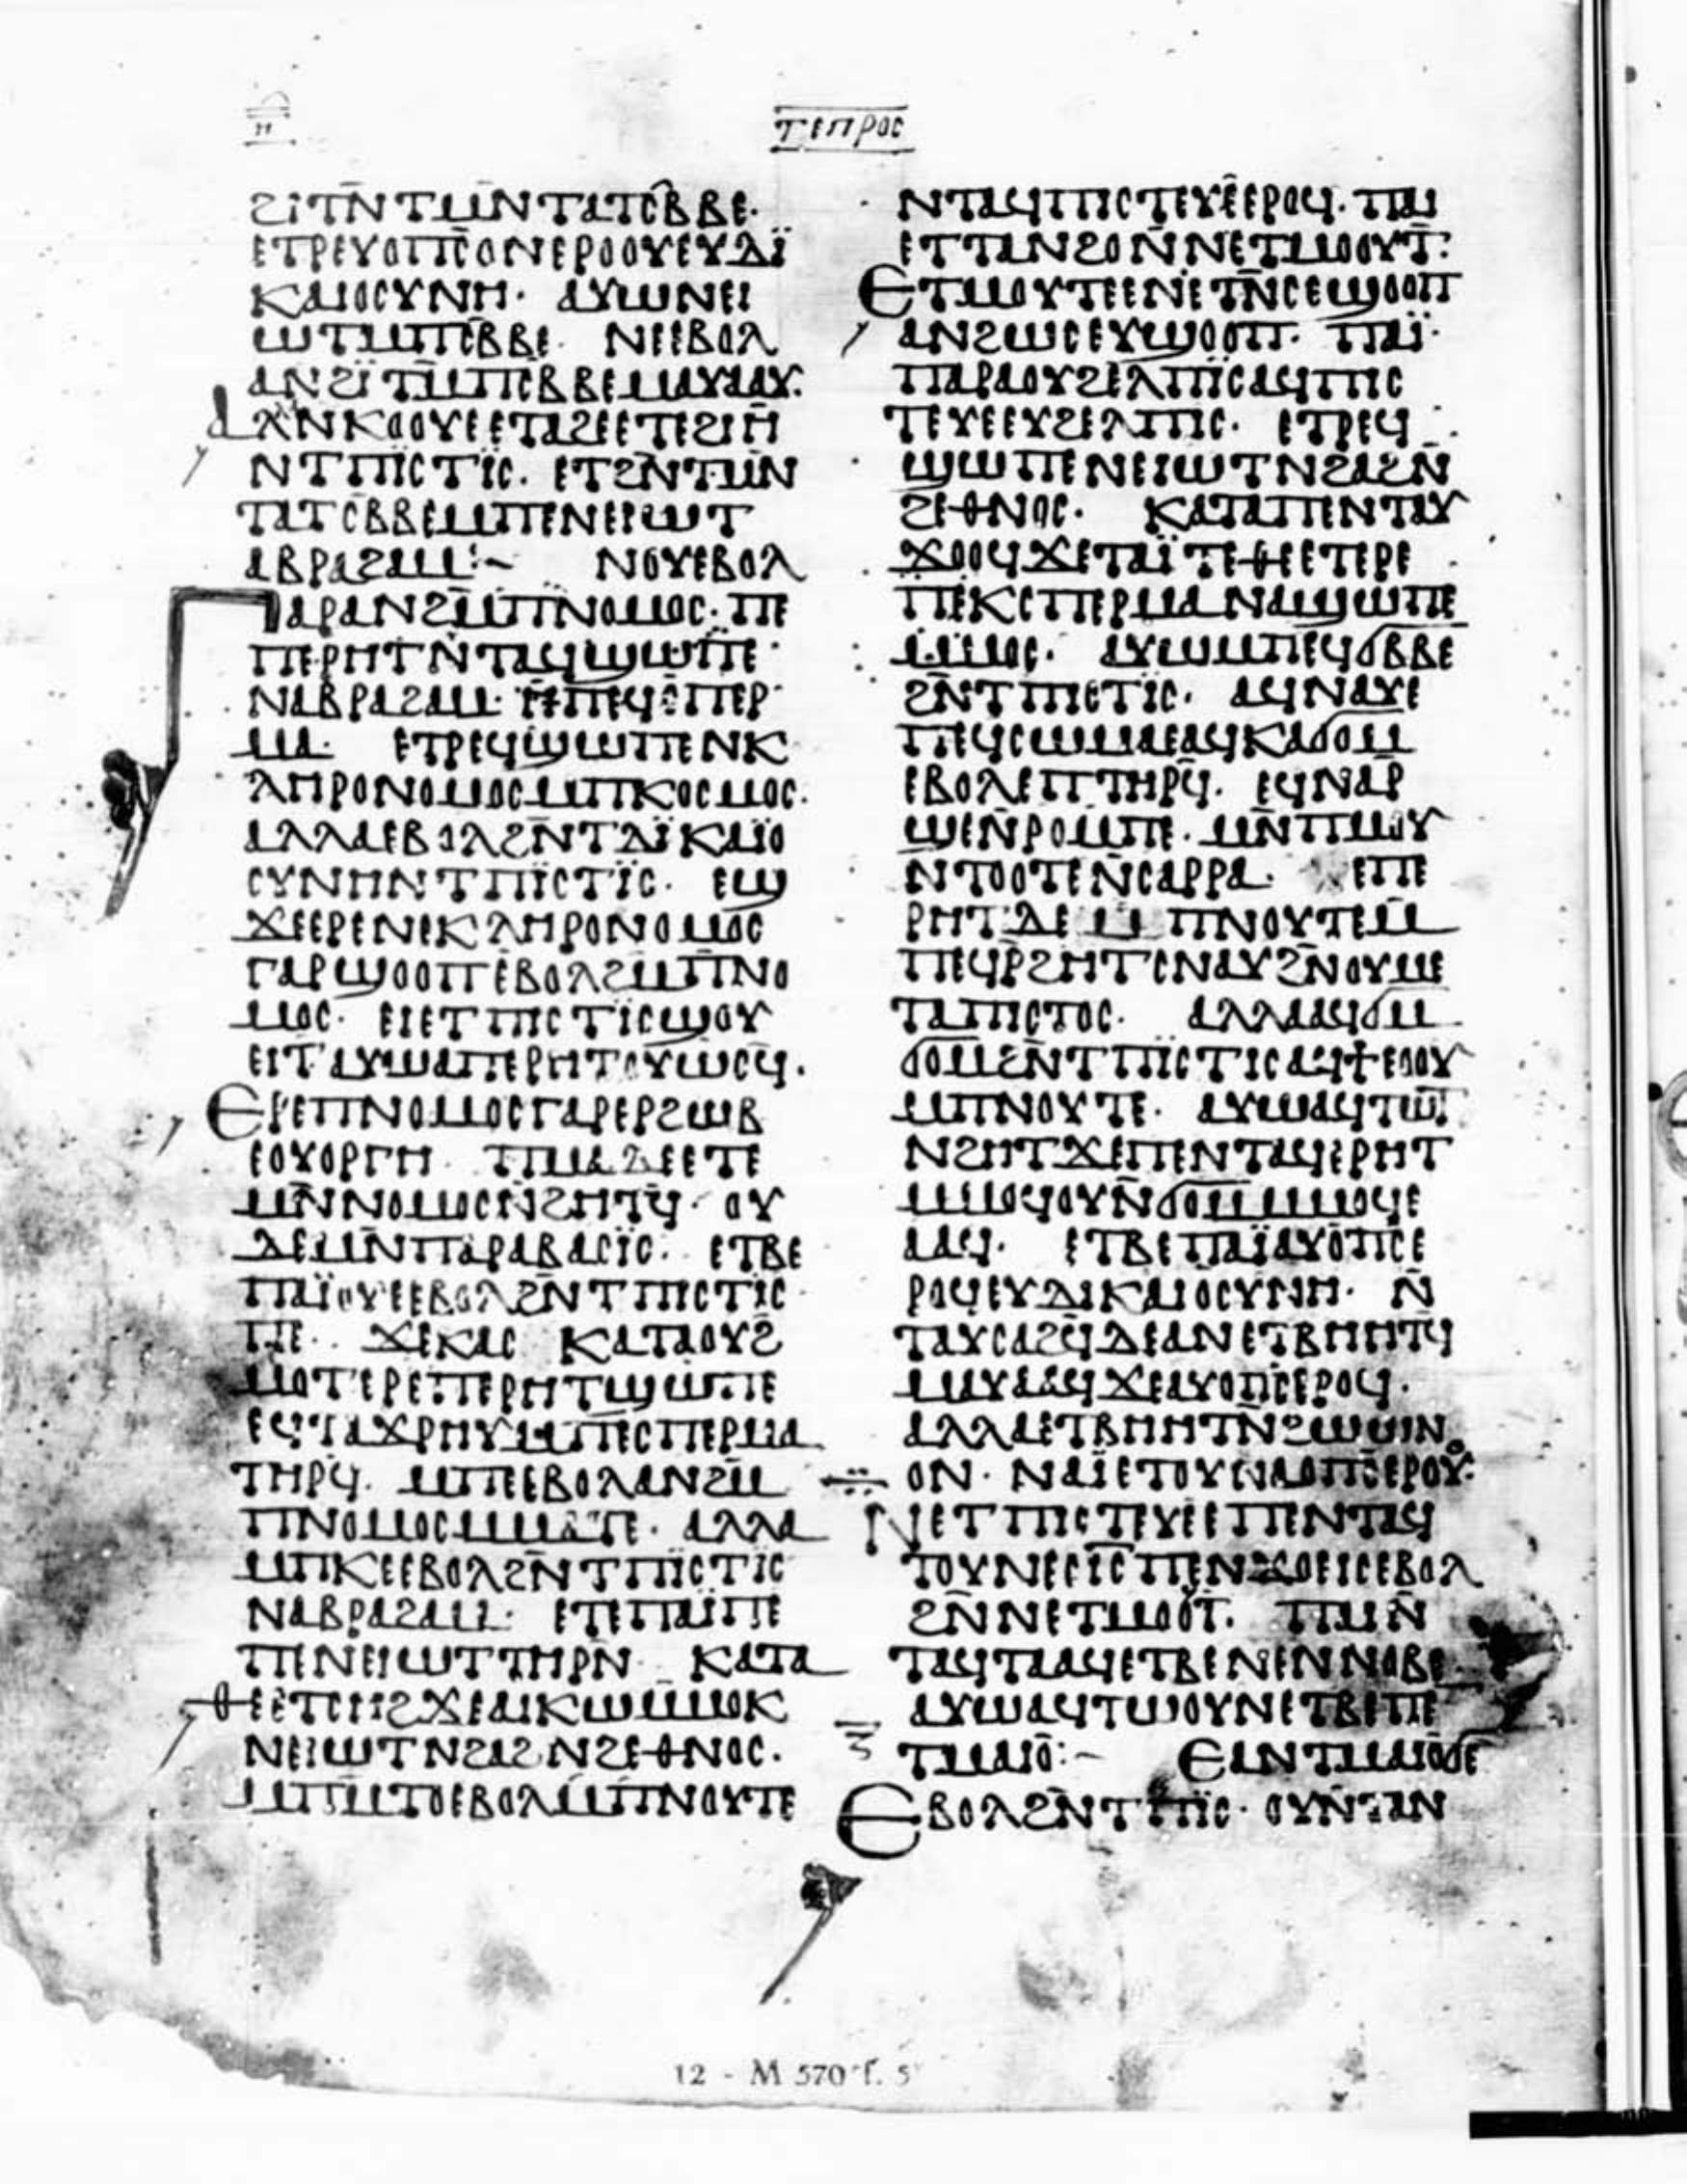 ⲏ
ⲧⲉⲡⲣⲟⲥ
ϩⲓⲧⲛ̄ⲧⲙⲛ̄ⲧⲁⲧⲥⲃ̄ⲃⲉ·
ⲉⲧⲣⲉⲩⲟⲡⲥ̄ⲟⲛⲉⲣⲟⲟⲩⲉⲩⲇⲓ̈
ⲕⲁⲓⲟⲥⲩⲛⲏ· ⲁⲩⲱⲛⲉⲓ
ⲱⲧⲙ̄ⲡⲥⲃ̄ⲃⲉ· ⲛⲉⲉⲃⲟⲗ
ⲁⲛϩⲓ̈ⲧⲙ̄ⲡⲥⲃ̄ⲃⲉⲙⲁⲩⲁⲁⲩ·
ⲁⲗⲛⲕⲟⲟⲩⲉⲉⲧⲁϩⲉⲉⲧⲉϩⲓⲏ
ⲛⲧⲡⲓⲥⲧⲓ̈ⲥ· ⲉⲧϩⲛ̄ⲧⲙⲛ̄
ⲧⲁⲧⲥⲃ̄ⲃⲉⲙ̄ⲡⲉⲛⲉⲓⲱⲧ
ⲁⲃⲣⲁϩⲁⲙ:~ ⲛⲟⲩⲉⲃⲟⲗ
ⲅⲁⲣⲁⲛϩⲙ̄ⲡⲛⲟⲙⲟⲥ·ⲡⲉ
ⲡⲉⲣⲏⲧⲛ̄ⲧⲁϥϣⲱⲡⲉ·
ⲛⲁⲃⲣⲁϩⲁⲙ· ⲏ̄ⲡⲉϥⲥⲡⲉⲣ
ⲙⲁ· ⲉⲧⲣⲉϥϣⲱⲡⲉⲛⲕ
ⲗⲏⲣⲟⲛⲟⲙⲟⲥⲙ̄ⲡⲕⲟⲥⲙⲟⲥ·
ⲁⲗⲗⲁⲉⲃⲟⲗϩⲛ̄ⲧⲇⲓ̈ⲕⲁⲓ̈ⲟ
ⲥⲩⲛⲏⲛⲧⲡⲓⲥⲧⲓ̈ⲥ· ⲉϣ
ϫⲉⲉⲣⲉⲛⲉⲕⲗⲏⲣⲟⲛⲟⲙⲟⲥ
ⲅⲁⲣϣⲟⲟⲡⲉⲃⲟⲗϩⲙ̄ⲡⲛⲟ
ⲙⲟⲥ· ⲉⲓⲉⲧⲡⲓⲥⲧⲓ̈ⲥϣⲟⲩ
ⲉⲓⲧ·ⲁⲩⲱⲁⲡⲉⲣⲏⲧⲟⲩⲱⲥϥ̄·
ⲉⲣⲉⲡⲛⲟⲙⲟⲥⲅⲁⲣⲉⲣϩⲱⲃ
ⲉⲟⲩⲟⲣⲅⲏ· ⲡⲙⲁⲇⲉⲉⲧⲉ
ⲙⲛ̄ⲛⲟⲙⲟⲥⲛ̄ϩⲏⲧϥ̄· ⲟⲩ
ⲇⲉⲙⲛ̄ⲡⲁⲣⲁⲃⲁⲥⲓ̈ⲥ· ⲉⲧⲃⲉ
ⲡⲁⲓ̈ⲟⲩⲉⲉⲃⲟⲗϩⲛ̄ⲧⲡⲓⲥⲧⲓ̈ⲥ·
ⲡⲉ· ϫⲉⲕⲁⲥ ⲕⲁⲧⲁⲟⲩϩ
ⲙⲟⲧⲉⲣⲉⲡⲉⲣⲏⲧϣⲱⲡⲉ
ⲉϥⲧⲁϫⲣⲏⲩⲙ̄ⲡⲉⲥⲡⲉⲣⲙⲁ
ⲧⲏⲣϥ· ⲙ̄ⲡⲉⲉⲃⲟⲗⲁⲛϩⲙ̄
ⲡⲛⲟⲙⲟⲥⲙ̄ⲙⲁⲧⲉ· ⲁⲗⲗⲁ
ⲙ̄ⲡⲕⲉⲉⲃⲟⲗϩⲛ̄ⲧⲡⲓⲥⲧⲓⲥ
ⲛⲁⲃⲣⲁϩⲁⲙ· ⲉⲧⲉⲡⲁⲓ̈ⲡⲉ
ⲡⲉⲛⲉⲓⲱⲧⲧⲏⲣⲛ̄· ⲕⲁⲧⲁ
ⲑⲉⲉⲧⲥⲏϩϫⲉⲁⲓⲕⲱⲙ̄ⲙⲟⲕ
ⲛⲉⲓⲱⲧⲛϩⲁϩⲛϩⲉⲑⲛⲟⲥ·
ⲙ̄ⲡⲙ̄ⲧⲟⲉⲃⲟⲗⲙ̄ⲡⲛⲟⲩⲧⲉ
ⲛⲧⲁϥⲡⲓⲥⲧⲉⲩⲉⲉⲣⲟϥ· ⲡⲁⲓ
ⲉⲧⲧⲁⲛϩⲟⲛ̄ⲛⲉⲧⲙⲟⲟⲩⲧ̄:
ⲉⲧⲙⲟⲩⲧⲉⲉⲛⲉⲧⲛ̄ⲥⲉϣⲟⲟⲡ
ⲁⲛϩⲱⲥⲉⲩϣⲟⲟⲡ· ⲡⲁⲓ̈·
ⲡⲁⲣⲁⲟⲩϩⲉⲗⲡⲓ̈ⲥⲁϥⲡⲓⲥ
ⲧⲉⲩⲉⲉⲩϩⲉⲗⲡⲓⲥ· ⲉⲧⲣⲉϥ
ϣⲱⲡⲉⲛⲉⲓⲱⲧⲛϩⲁϩⲛ̄
ϩⲉⲑⲛⲟⲥ· ⲕⲁⲧⲁⲡⲉⲛⲧⲁⲩ
ϫⲟⲟϥϫⲉⲧⲁⲓ̈ⲧⲉⲑⲉⲉⲧⲉⲣⲉ
ⲡⲉⲕⲥⲡⲉⲣⲙⲁⲛⲁϣⲱⲡⲉ
ⲙ̄ⲙⲟⲥ· ⲁⲩⲱⲙ̄ⲡⲉϥϭⲃⲃⲉ
ϩⲛ̄ⲧⲡⲓⲥⲧⲓ̈ⲥ· ⲁϥⲛⲁⲩⲉ
ⲡⲉϥⲥⲱⲙⲁⲉⲁϥⲕⲁϭⲟⲙ
ⲉⲃⲟⲗⲉⲡⲧⲏⲣϥ̄· ⲉϥⲛⲁⲣ̄
ϣⲉⲛ̄ⲣⲟⲙⲡⲉ· ⲙⲛ̄ⲡⲙⲟⲩ
ⲛⲧⲟⲟⲧⲉⲛ̄ⲥⲁⲣⲣⲁ· ⲉⲡⲉ
ⲣⲏⲧⲇⲉ ⲙ ⲡⲛⲟⲩⲧⲉⲙ̄
ⲡⲉϥⲣ̄ϩⲏⲧⲥⲛⲁⲩϩⲛ̄ⲟⲩⲙⲉ
ⲧⲁⲡⲓⲥⲧⲟⲥ· ⲁⲗⲗⲁⲁϥϭⲙ̄
ϭⲟⲙϩⲛ̄ⲧⲡⲓ̈ⲥⲧⲓⲥⲁϥϯⲉⲟⲟⲩ
ⲙ̄ⲡⲛⲟⲩⲧⲉ· ⲁⲩⲱⲁϥⲧⲱⲧ̄
ⲛϩⲏⲧϫⲉⲡⲉⲛⲧⲁϥⲉⲣⲏⲧ
ⲙ̄ⲙⲟϥⲟⲩⲛ̄ϭⲟⲙⲙ̄ⲙⲟϥⲉ
ⲁⲁϥ· ⲉⲧⲃⲉⲡⲁⲓ̈ⲁⲩⲟⲡⲥⲉ
ⲣⲟϥⲉⲩⲇⲓⲕⲁⲓⲟⲥⲩⲛⲏ· ⲛ̄
ⲧⲁⲩⲥⲁϩϥ̄ⲇⲉⲁⲛⲉⲧⲃⲏⲏⲧϥ
ⲙⲁⲩⲁⲁϥϫⲉⲁⲩⲟⲡⲥⲉⲣⲟϥ·
ⲁⲗⲗⲁⲉⲧⲃⲏⲏⲧⲛ̄ϩⲱⲱⲛ
ⲟⲛ· ⲛⲁⲓ̈ⲉⲧⲟⲩⲛⲁⲟⲡⲥ̄ⲉⲣⲟⲩ·
ⲛⲉⲧⲡⲓⲥⲧⲉⲩⲉⲉⲡⲉⲛⲧⲁϥ
ⲧⲟⲩⲛⲉⲥⲓ̅ⲥ̅ⲡⲉⲛϫⲟⲉⲓⲥⲉⲃⲟⲗ
ϩⲛ̄ⲛⲉⲧⲙⲟⲟⲩⲧ· ⲡⲁⲓⲛ̄
ⲧⲁϥⲧⲁⲁϥⲉⲧⲃⲉⲛⲉⲛⲛⲟⲃⲉ
ⲁⲩⲱⲁϥⲧⲱⲟⲩⲛⲉⲧⲃⲉⲡⲉ
ⲍ ⲧⲙⲁⲓⲟ̄:~ ⲉⲁⲛⲧⲙⲁⲓⲟϭⲉ
ⲉⲃⲟⲗϩⲛ̄ⲧⲡⲓⲥ· ⲟⲩⲛ̄ⲧⲁⲛ
12 - M 570 f. 5ᵛ